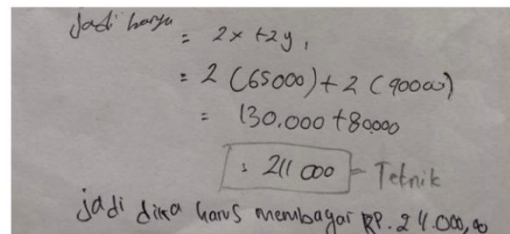 Jadi harga = 2x + 2y,
= 2 (65000) + 2 (90000)
= 130.000 + 80.000
= 211 000 - Teknik
Jadi dika harus membayar RP. 211.000,00